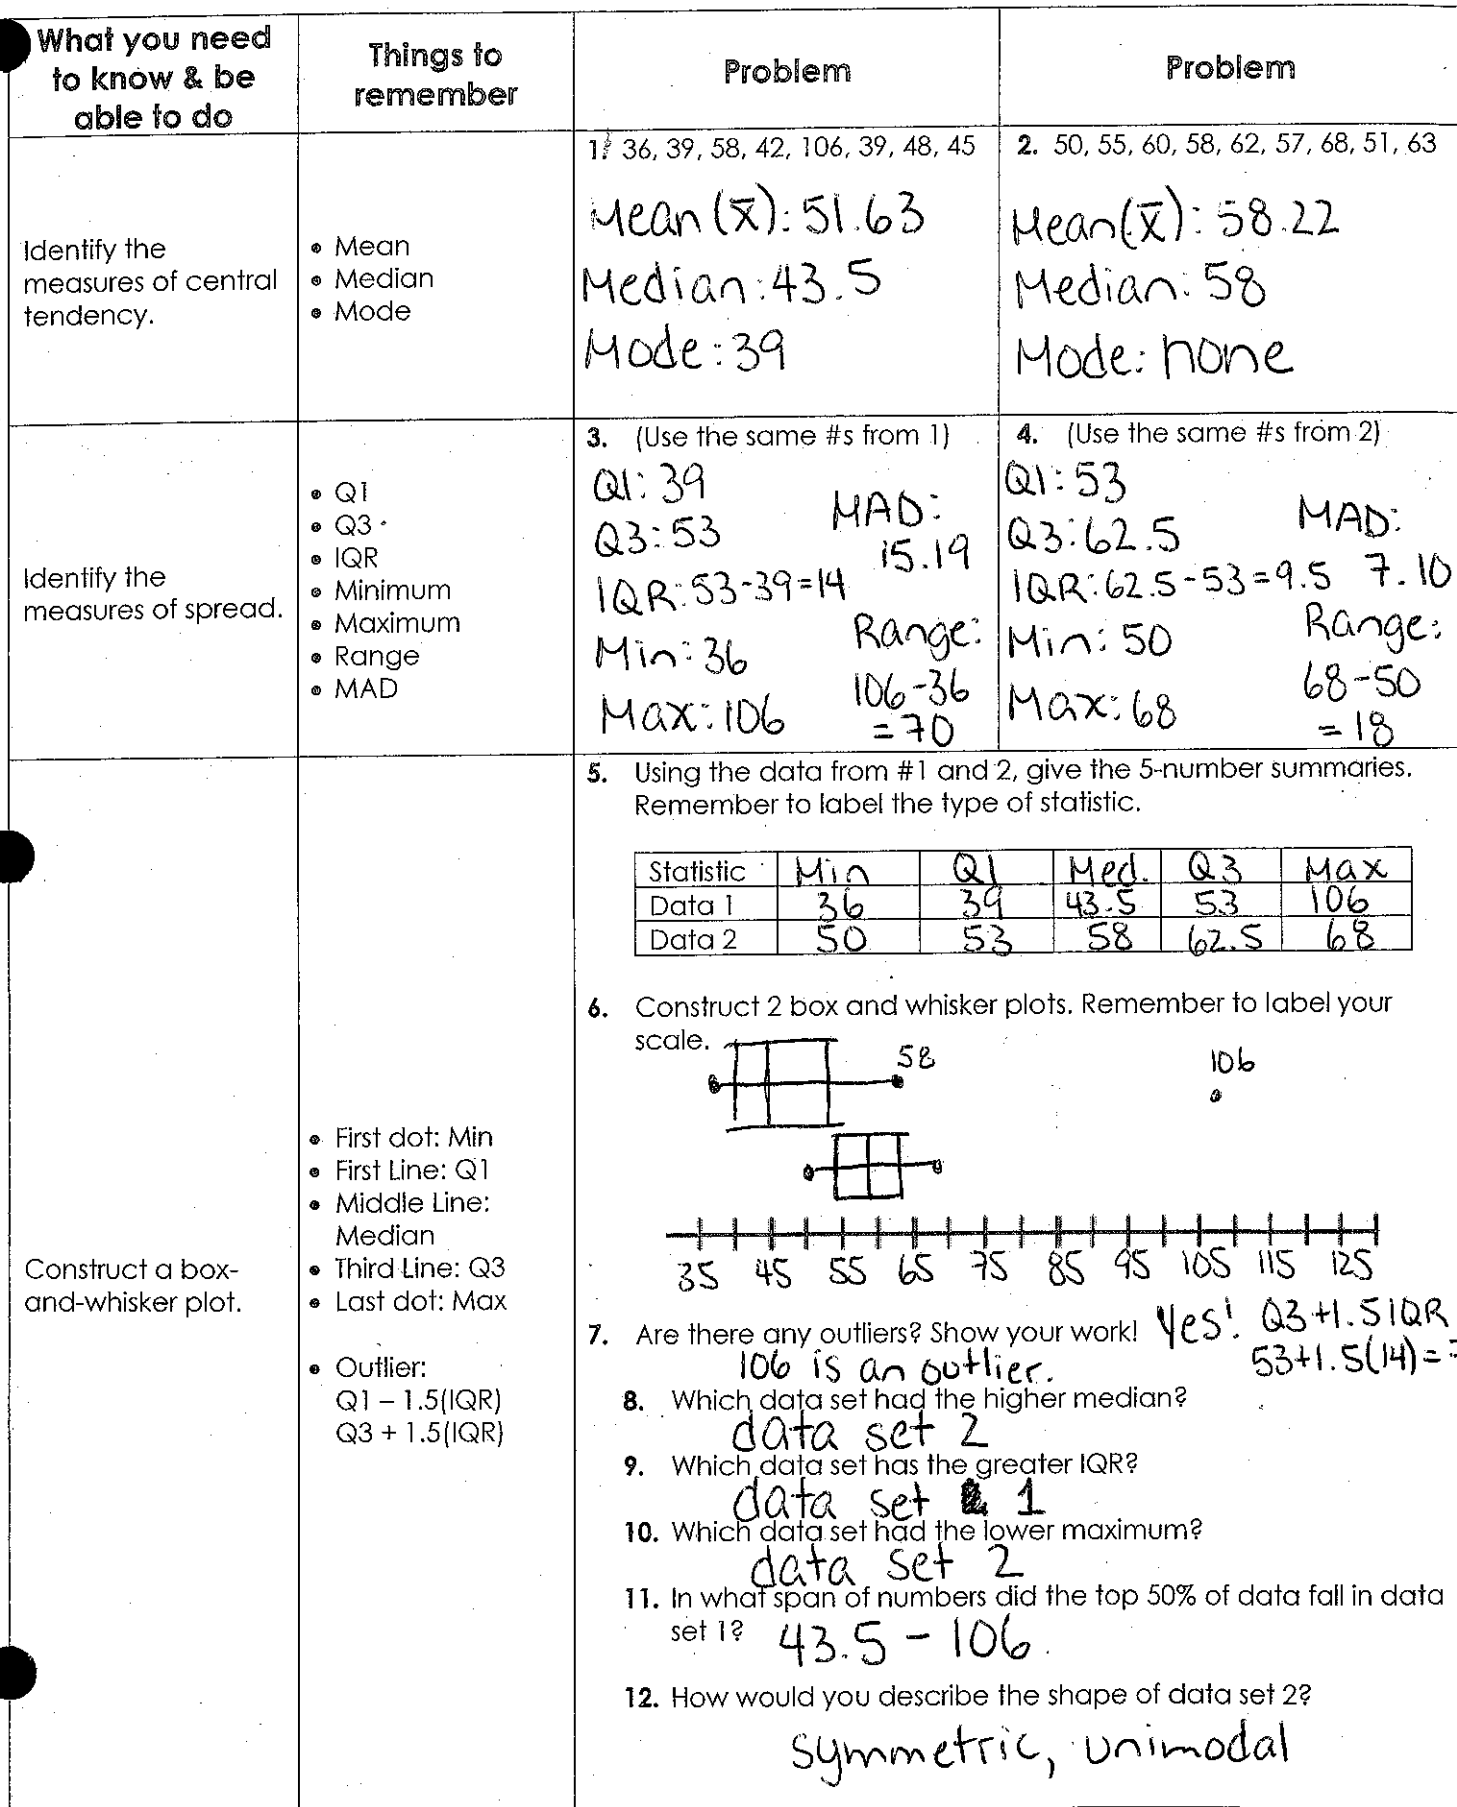 What you need
to know & be
able to do
Things to
remember
Problem
Problem
Identify the
measures of central
tendency.
• Mean
• Median
• Mode
1. 36, 39, 58, 42, 106, 39, 48, 45
Mean (x̄): 51.63
Median: 43.5
Mode: 39
2. 50, 55, 60, 58, 62, 57, 68, 51, 63
Mean(x̄): 58.22
Median: 58
Mode: none
Identify the
measures of spread.
• Q1
• Q3
• IQR
• Minimum
• Maximum
• Range
• MAD
3. (Use the same #s from 1)
Q1: 39
Q3: 53
IQR: 53-39=14
Min: 36
Max: 106
MAD:
15.19
Range:
106-36
=70
4. (Use the same #s from 2)
Q1: 53
Q3: 62.5
IQR: 62.5-53=9.5
Min: 50
Max: 68
MAD:
7.10
Range:
68-50
=18
Construct a box-
and-whisker plot.
• First dot: Min
• First Line: Q1
• Middle Line:
Median
• Third Line: Q3
• Last dot: Max
• Outlier:
Q1 – 1.5(IQR)
Q3 + 1.5(IQR)
5. Using the data from #1 and 2, give the 5-number summaries.
Remember to label the type of statistic.
Statistic Min Q1 Med. Q3 Max
Data 1 36 39 43.5 53 106
Data 2 50 53 58 62.5 68
6. Construct 2 box and whisker plots. Remember to label your
scale.
58
106
35 45 55 65 75 85 95 105 115 125
7. Are there any outliers? Show your work! Yes! Q3+1.5IQR
106 is an outlier. 53+1.5(14)=
8. Which data set had the higher median?
data set 2
9. Which data set has the greater IQR?
data set 1
10. Which data set had the lower maximum?
data set 2
11. In what span of numbers did the top 50% of data fall in data
set 1? 43.5 - 106
12. How would you describe the shape of data set 2?
symmetric, unimodal